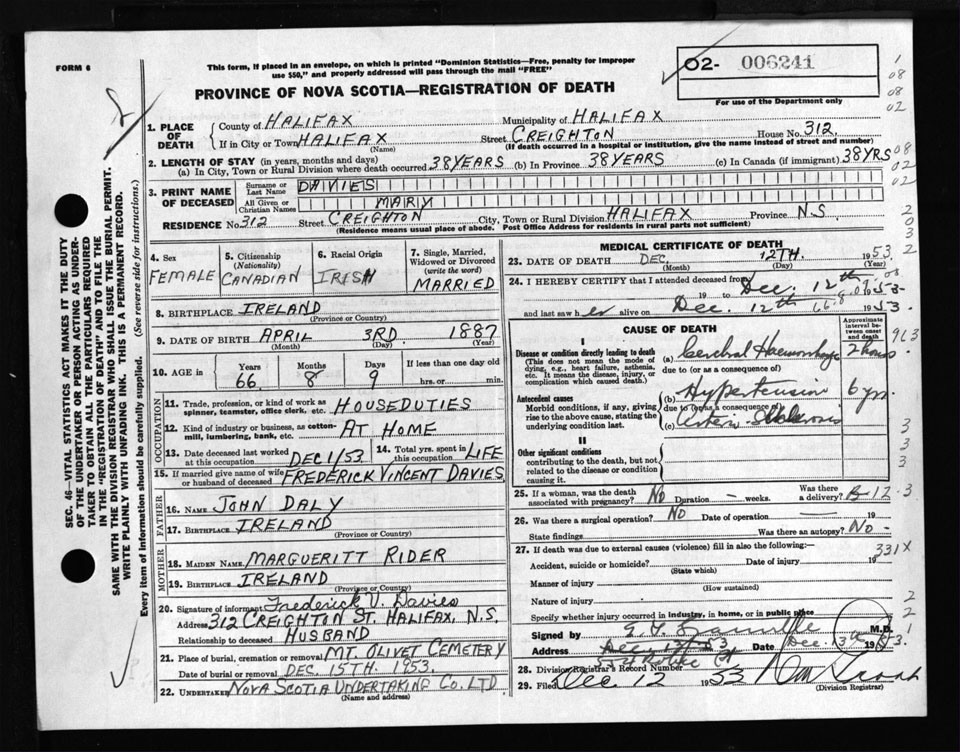 FORM 6
This form, if placed in an envelope, on which is printed "Dominion Statistics—Free, penalty for improper
use $50," and properly addressed will pass through the mail "FREE"
O2- 006241
For use of the Department only
PROVINCE OF NOVA SCOTIA—REGISTRATION OF DEATH
1. PLACE OF DEATH
County of HALIFAX Municipality of HALIFAX
If in City or Town HALIFAX Street CREIGHTON House No. 312.
(Name) (If death occurred in a hospital or institution, give the name instead of street and number)
2. LENGTH OF STAY (in years, months and days)
(a) In City, Town or Rural Division where death occurred 38 YEARS (b) In Province 38 YEARS (c) In Canada (if immigrant) 38 YRS
3. PRINT NAME OF DECEASED
Surname or Last Name DAVIES
All Given or Christian Names MARY
RESIDENCE No. 312 Street CREIGHTON City, Town or Rural Division HALIFAX Province N.S.
(Residence means usual place of abode. Post Office Address for residents in rural parts not sufficient)
4. Sex
FEMALE
5. Citizenship
(Nationality)
CANADIAN
6. Racial Origin
IRISH
7. Single, Married, Widowed or Divorced
(write the word)
MARRIED
8. BIRTHPLACE IRELAND
(Province or Country)
9. DATE OF BIRTH APRIL 3RD. 1887
(Month) (Day) (Year)
10. AGE in
Years Months Days If less than one day old
66 8 9 hrs. or min.
OCCUPATION
11. Trade, profession, or kind of work as
spinner, teamster, office clerk, etc. HOUSEDUTIES
12. Kind of industry or business, as cotton-
mill, lumbering, bank, etc. AT HOME
13. Date deceased last worked
at this occupation DEC 1/53
14. Total yrs. spent in
this occupation LIFE
15. If married give name of wife
or husband of deceased FREDERICK VINCENT DAVIES
FATHER
16. NAME JOHN DALY
17. BIRTHPLACE IRELAND
(Province or Country)
MOTHER
18. MAIDEN NAME MARGUERITT RIDER
19. BIRTHPLACE IRELAND
(Province or Country)
20. Signature of informant Frederick V. Davies
Address 312 CREIGHTON ST. HALIFAX, N.S.
Relationship to deceased HUSBAND
21. Place of burial, cremation or removal MT. OLIVET CEMETERY
Date of burial or removal DEC 15TH. 1953.
22. UNDERTAKER NOVA SCOTIA UNDERTAKING CO. LTD
(Name and address)
MEDICAL CERTIFICATE OF DEATH
23. DATE OF DEATH DEC. 12TH. 1953
(Month) (Day) (Year)
24. I HEREBY CERTIFY that I attended deceased from
Dec. 12th 1953
19 to
and last saw her alive on Dec. 12th 1953.
CAUSE OF DEATH
Approximate interval between onset and death
I
Disease or condition directly leading to death
(This does not mean the mode of
dying, e.g., heart failure, asthenia,
etc. It means the disease, injury, or
complication which caused death.)
(a) Cerebral Haemorrhage 2 hours.
due to (or as a consequence of)
Antecedent causes
Morbid conditions, if any, giving
rise to the above cause, stating the
underlying condition last.
(b) Hypertension 6 yrs.
due to (or as a consequence of)
(c)
II
Other significant conditions
contributing to the death, but not
related to the disease or condition
causing it.
25. If a woman, was the death
associated with pregnancy? No Duration — weeks. Was there
a delivery?
B-12.3
26. Was there a surgical operation? No Date of operation — 19
State findings Was there an autopsy? No -
27. If death was due to external causes (violence) fill in also the following:—
331X
Accident, suicide or homicide? Date of injury 19
(State which)
Manner of injury
(How sustained)
Nature of injury
Specify whether injury occurred in industry, in home, or in public place
Signed by M.D.
Address Date Dec.
28. Division Registrar's Record Number
29. Filed Dec 12 1953
(Division Registrar)
SEC. 46—VITAL STATISTICS ACT MAKES IT THE DUTY
OF THE UNDERTAKER OR PERSON ACTING AS UNDER-
TAKER TO OBTAIN ALL THE PARTICULARS REQUIRED
IN THE "REGISTRATION OF DEATH" AND TO FILE THE
SAME WITH THE DIVISION REGISTRAR WHO SHALL ISSUE THE BURIAL PERMIT.
WRITE PLAINLY WITH UNFADING INK. THIS IS A PERMANENT RECORD.
Every item of information should be carefully supplied. (See reverse side for instructions.)